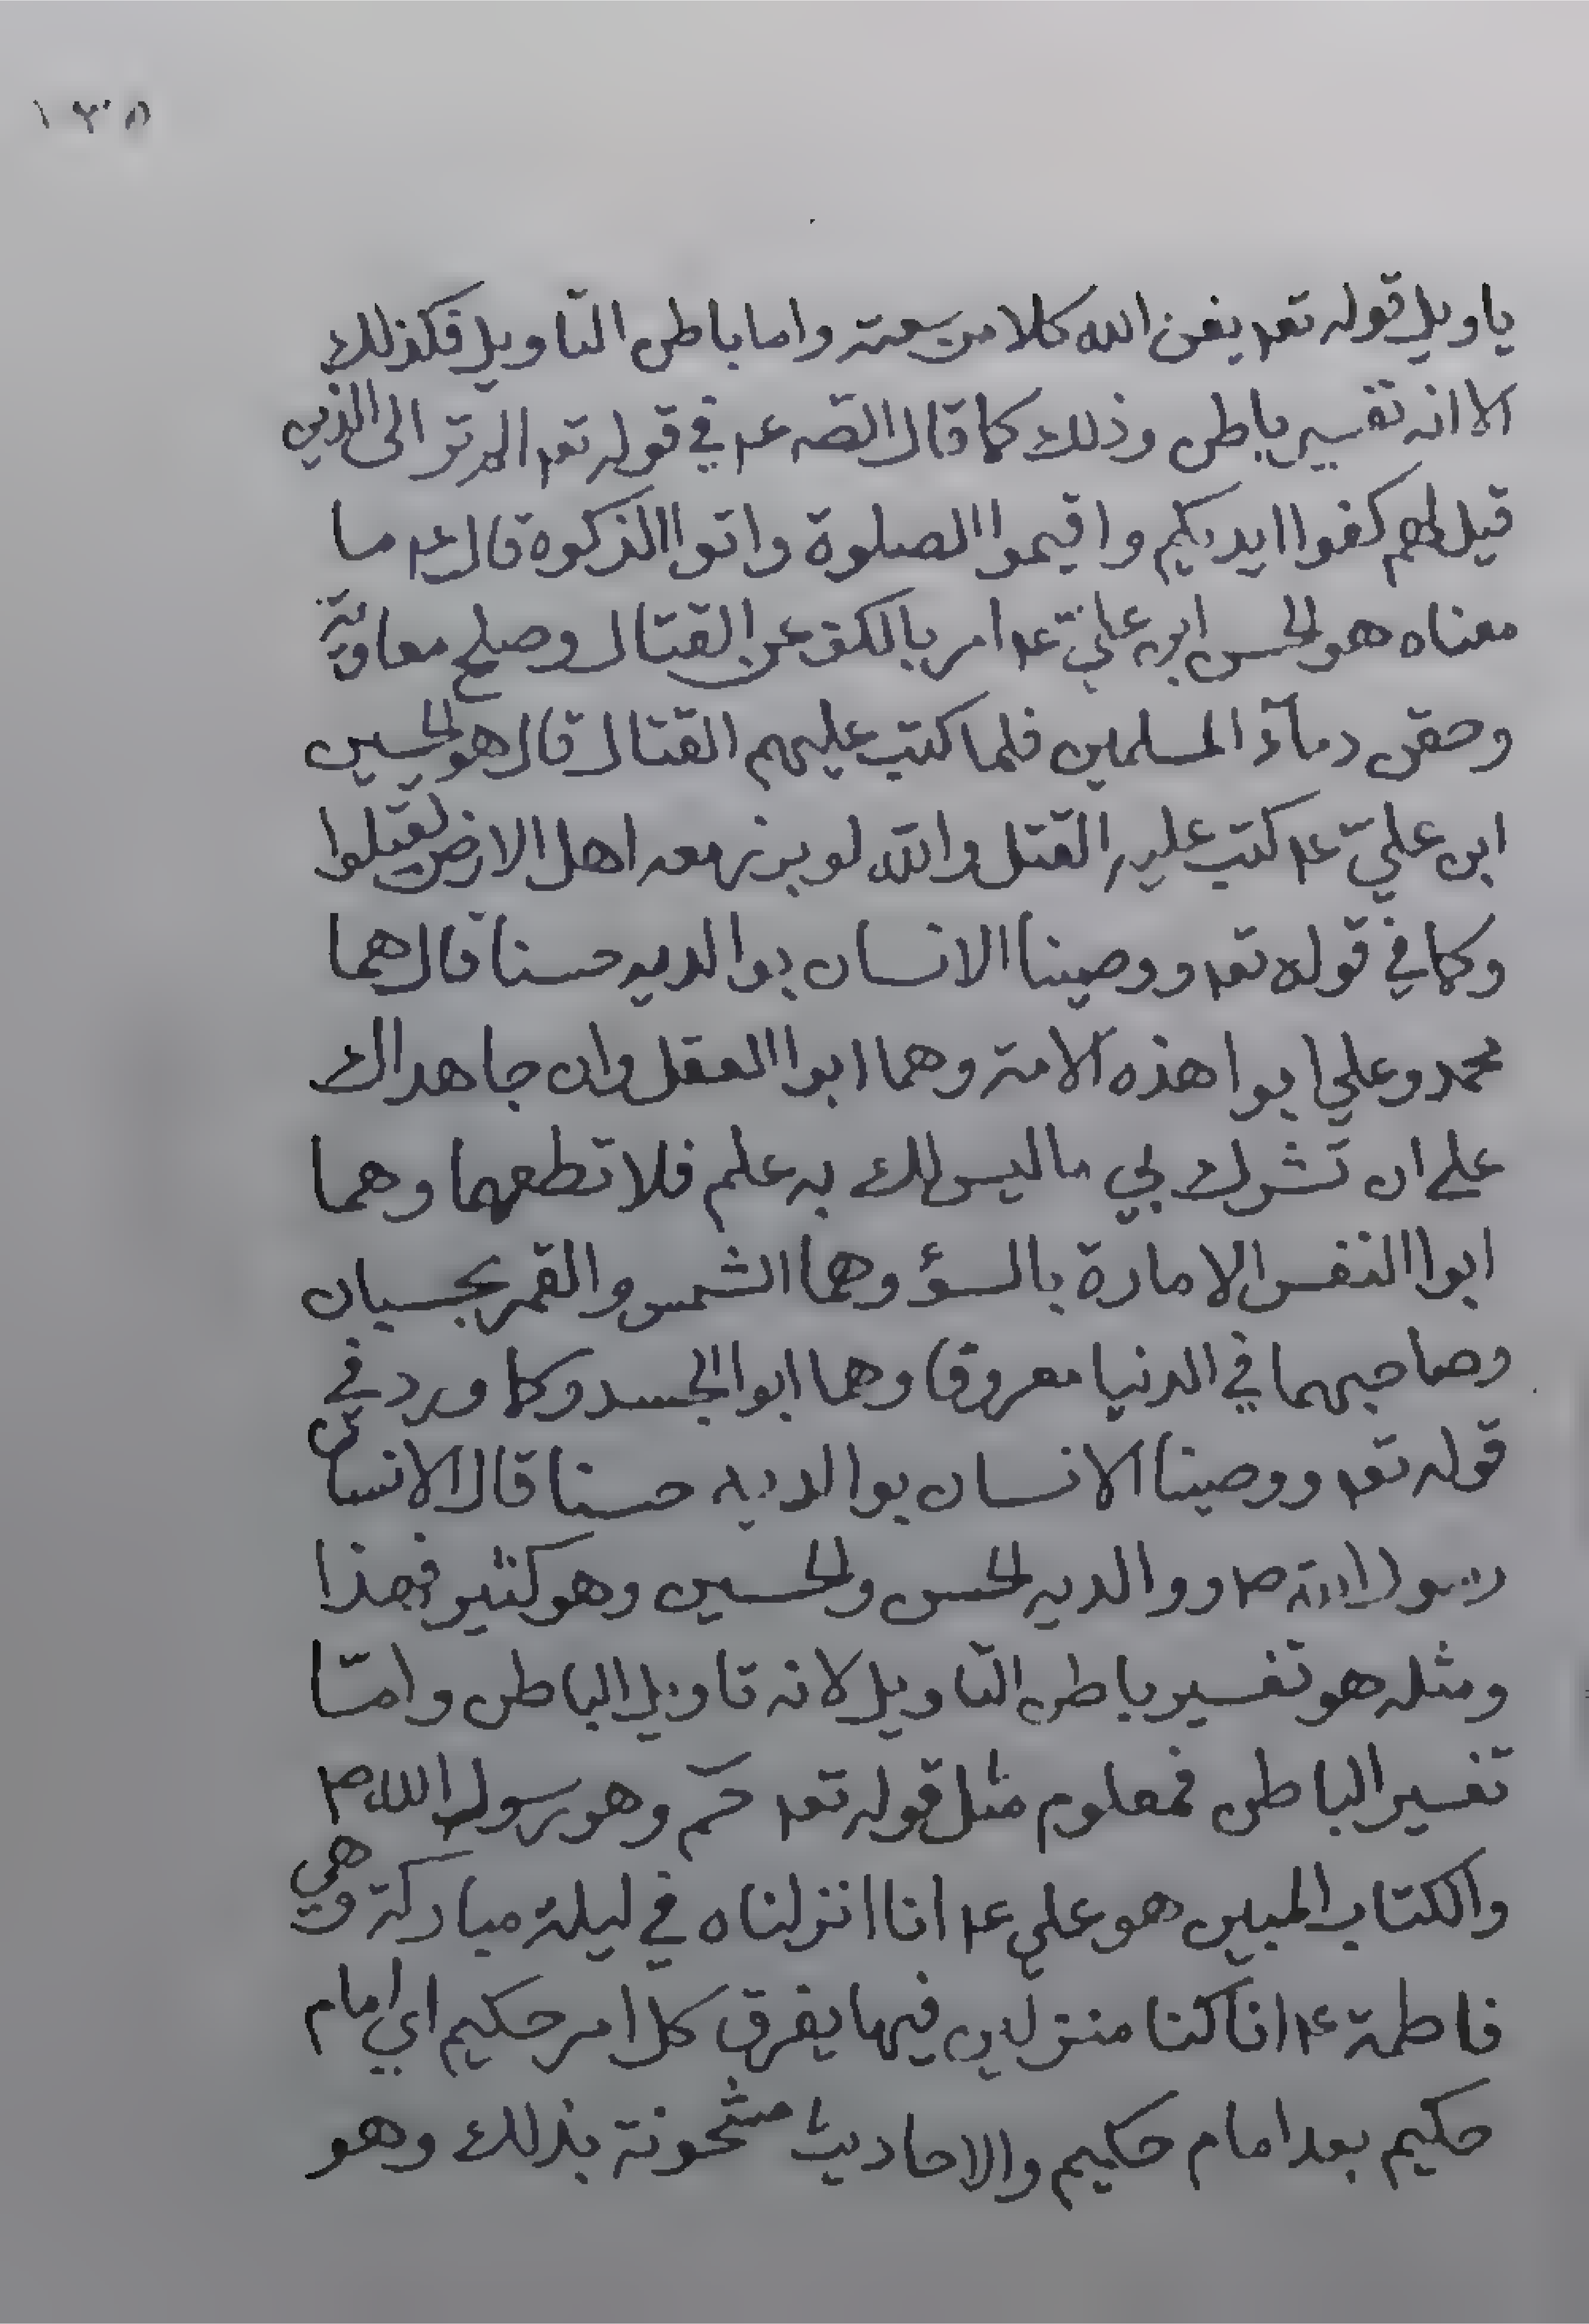 ١٣٥
ياويل قوله تعه يغن الله كلا من سعته واما باطن التاويل فكذلك
الا انه تفسير باطن وذلك كما قال الصه ع۴ في قوله تعه الم تر الى الذين
قيل لهم كفوا ايديكم واقيموا الصلوة واتوا الزكوة قال ع۴ ما
معناه هو الحسن ابن عليّ ع۴ امر بالكف عن القتال وصلح معاوية
وحقن دمآء المسلمين فلما كتب عليهم القتال قال هو الحسين
ابن عليّ ع۴ كتب عليه القتل والله لو برز معه اهل الارض لقتلوا
وكما في قوله تعه ووصينا الانسان بوالديه حسنا قال هما
محمد وعلي ابوا هذه الامة وهما ابوا العقل وان جاهداك
على ان تشرك بي ما ليس لك به علم فلا تطعهما وهما
ابوا النفس الامارة بالسؤ وهما الشمس والقمر بحسبان
وصاحبهما في الدنيا معروفا وهما ابوا الجسد وكما ورد في
قوله تعه ووصينا الانسان بوالديه حسنا قال الانسان
رسول الله ص ووالديه الحسن والحسين وهو كثير فهذا
ومثله هو تفسير باطن التاويل لانه تاويل الباطن وامّا
تفسير الباطن فمعلوم مثل قوله تعه حم وهو رسول الله ص
والكتاب المبين هو علي ع۴ انا انزلناه في ليلة مباركة وهي
فاطمة ع۴ انا كنا منزلين فيها يفرق كل امر حكيم اي امام
حكيم بعد امام حكيم والاحاديث مشحونة بذلك وهو